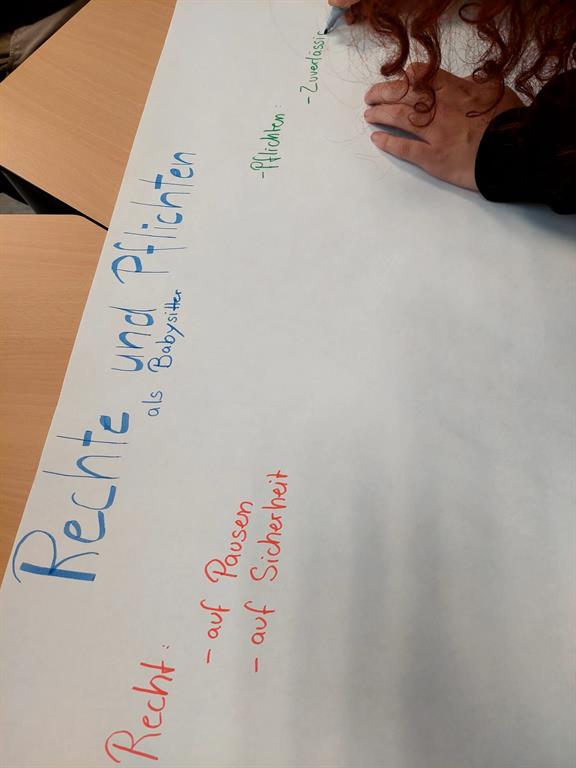 Rechte und Pflichten
als Babysitter
Recht:
- auf Pausen
- auf Sicherheit
-Pflichten:
- Zuverlässig